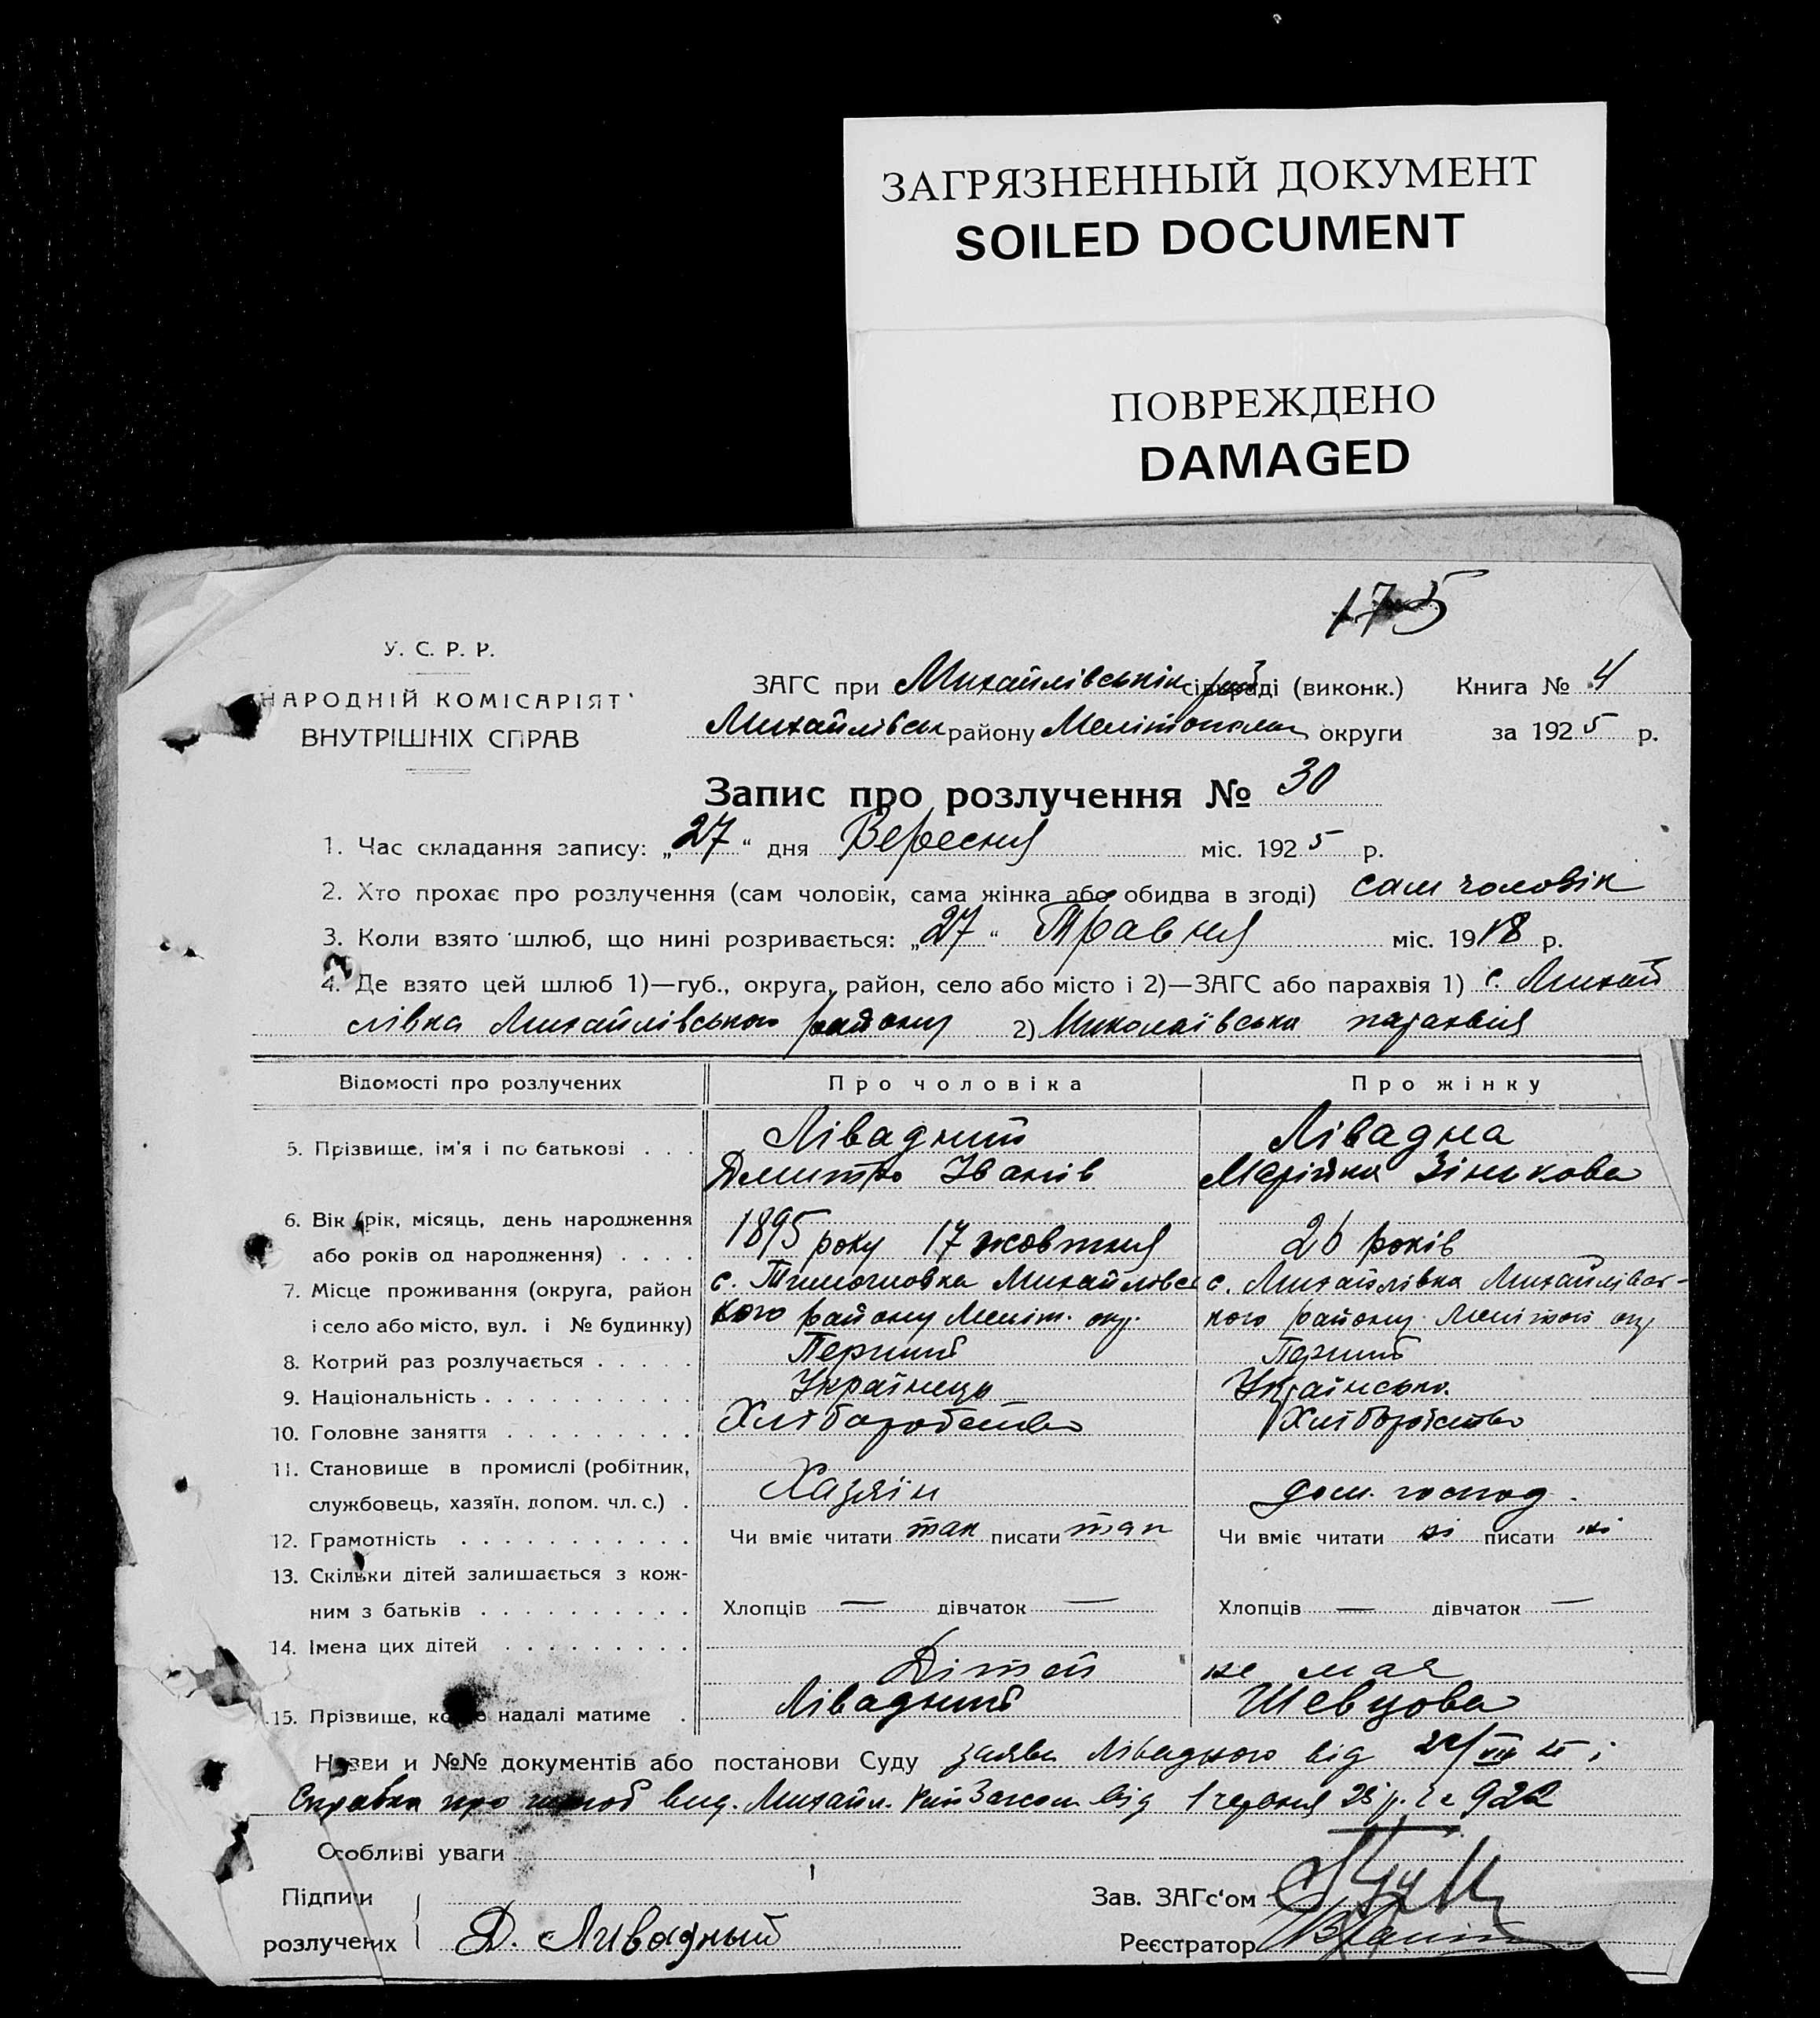 ЗАГРЯЗНЕННЫЙ ДОКУМЕНТ
SOILED DOCUMENT
ПОВРЕЖДЕНО
DAMAGED
175
У. С. Р. Р.
НАРОДНІЙ КОМІСАРІЯТ
ВНУТРІШНІХ СПРАВ
ЗАГС при Михайлівськім (виконк.) Книга № 4
Михайлівськ району Мелітопольск округи за 1925 р.
Запис про розлучення № 30
1. Час складання запису: „27" дня Вересня міс. 1925 р.
2. Хто прохає про розлучення (сам чоловік, сама жінка або обидва в згоді) сам чоловік
3. Коли взято шлюб, що нині розривається: „27" Травня міс. 1918 р.
4. Де взято цей шлюб 1)—губ., округа, район, село або місто і 2)—ЗАГС або парахвія 1) с. Михай
лівка Михайлівського району 2) Миколаївська парахвія
Відомості про розлучених Про чоловіка Про жінку
5. Прізвище, ім'я і по батькові . . . Лівадний Лівадна
Дмитро Іванів Марійка Зінькова
6. Вік (рік, місяць, день народження
або років од народження) . . . . 1895 року 17 жовтня 26 років
7. Місце проживання (округа, район с. Тимошовка Михайлівсь с. Михайлівка Михайлівсь-
і село або місто, вул. і № будинку) кого району Меліт. окр. кого району Мелітоп окр
8. Котрий раз розлучається . . . . . Перший Перший
9. Національність . . . . . . . . . . Українець Українська
10. Головне заняття . . . . . . . . . Хліборобство Хліборобство
11. Становище в промислі (робітник,
службовець, хазяїн, допом. чл. с.) . Хазяїн дом. господ.
12. Грамотність . . . . . . . . . . . Чи вміє читати так писати так Чи вміє читати ні писати ні
13. Скільки дітей залишається з кож-
ним з батьків . . . . . . . . . . Хлопців — дівчаток — Хлопців — дівчаток —
14. Імена цих дітей . . . . . . . . .
Дітей не має
15. Прізвище, надалі матиме . Лівадний Шевцова
Назви и №№ документів або постанови Суду заява Лівадного від і
Справка про шлюб вид. Михайл. Рай Загсом від 1 червня 25 р. № 922
Особливі уваги
Підписи
розлучених Д. Ливадный
Зав. ЗАГс'ом
Реєстратор